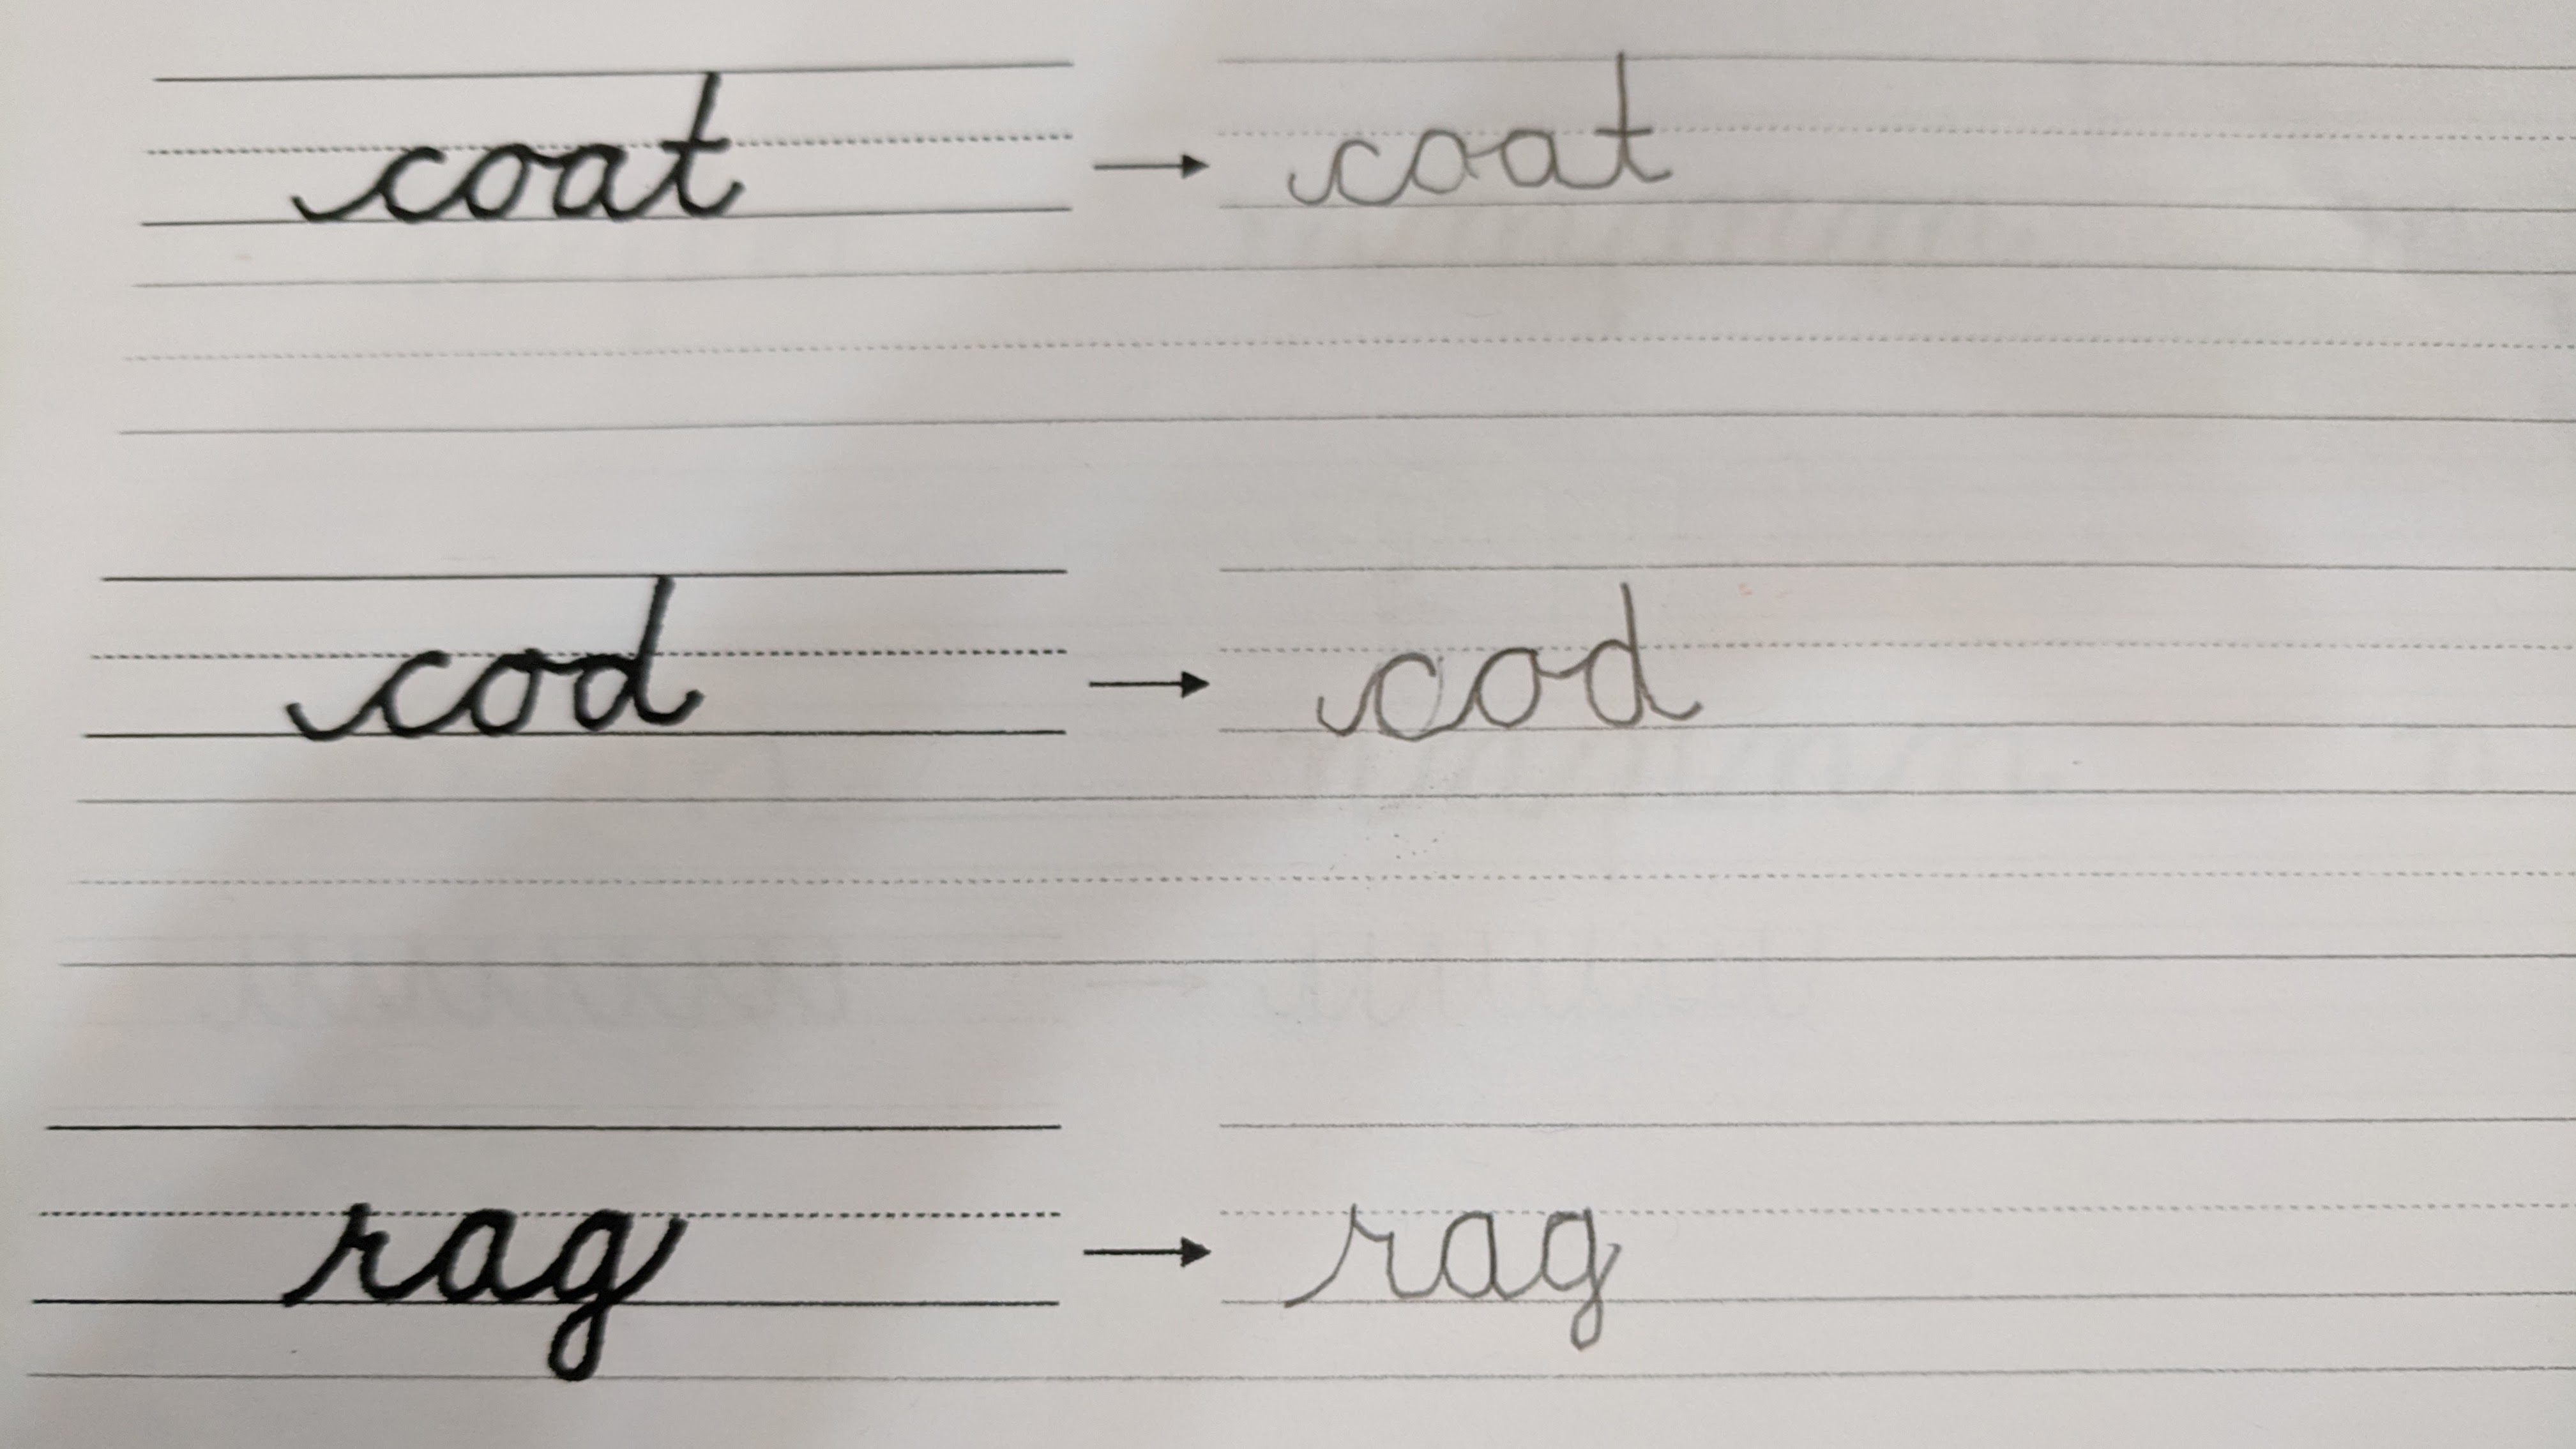 coat → coat
cod → cod
rag → rag